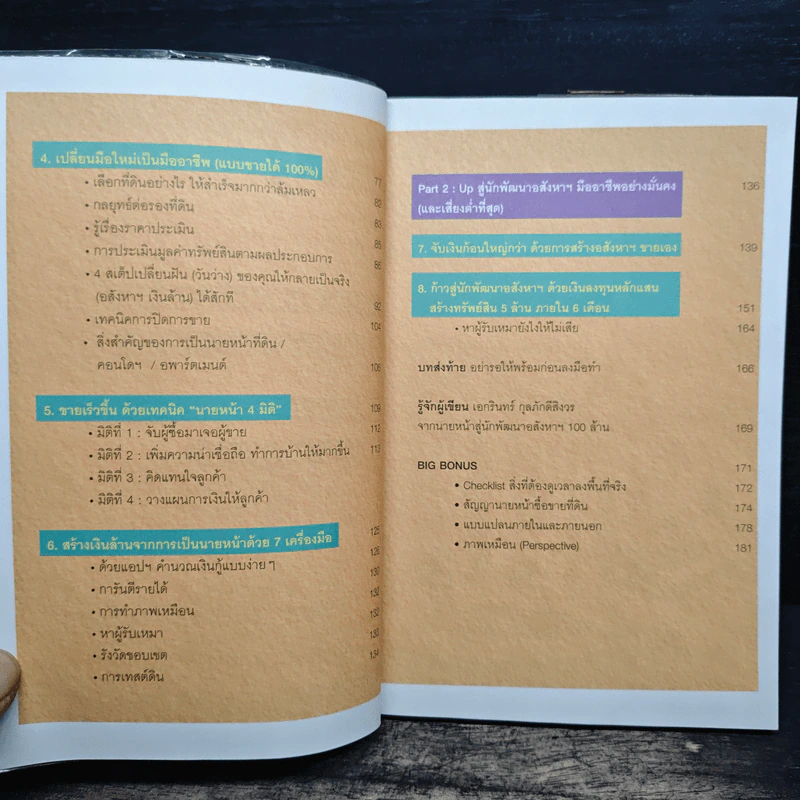 4. เปลี่ยนมือใหม่เป็นมืออาชีพ (แบบขายได้ 100%) 77
• เลือกที่ดินอย่างไร ให้สำเร็จมากกว่าล้มเหลว 82
• กลยุทธ์ต่อรองที่ดิน 83
• รู้เรื่องราคาประเมิน 85
• การประเมินมูลค่าทรัพย์สินตามผลประกอบการ 86
• 4 สเต็ปเปลี่ยนฝัน (วันว่าง) ของคุณให้กลายเป็นจริง
(อสังหาฯ เงินล้าน) ได้สักที 92
• เทคนิคการปิดการขาย 104
• สิ่งสำคัญของการเป็นนายหน้าที่ดิน /
คอนโดฯ / อพาร์ตเมนต์ 106
5. ขายเร็วขึ้น ด้วยเทคนิค “นายหน้า 4 มิติ” 109
• มิติที่ 1 : จับผู้ซื้อมาเจอผู้ขาย 112
• มิติที่ 2 : เพิ่มความน่าเชื่อถือ ทำการบ้านให้มากขึ้น 113
• มิติที่ 3 : คิดแทนใจลูกค้า
• มิติที่ 4 : วางแผนการเงินให้ลูกค้า
6. สร้างเงินล้านจากการเป็นนายหน้าด้วย 7 เครื่องมือ 125
• ด้วยแอปฯ คำนวณเงินกู้แบบง่าย ๆ 126
• การันตีรายได้ 130
• การทำภาพเหมือน 130
• หาผู้รับเหมา 132
• รังวัดขอบเขต 133
• การเทสต์ดิน 134
Part 2 : Up สู่นักพัฒนาอสังหาฯ มืออาชีพอย่างมั่นคง 136
(และเสี่ยงต่ำที่สุด)
7. จับเงินก้อนใหญ่กว่า ด้วยการสร้างอสังหาฯ ขายเอง 139
8. ก้าวสู่นักพัฒนาอสังหาฯ ด้วยเงินลงทุนหลักแสน
สร้างทรัพย์สิน 5 ล้าน ภายใน 6 เดือน 151
• หาผู้รับเหมายังไงให้ไม่เสีย 164
บทส่งท้าย อย่ารอให้พร้อมก่อนลงมือทำ 166
รู้จักผู้เขียน เอกรินทร์ กุลภักดีสิงวร
จากนายหน้าสู่นักพัฒนาอสังหาฯ 100 ล้าน 169
BIG BONUS 171
• Checklist สิ่งที่ต้องดูเวลาลงพื้นที่จริง 172
• สัญญานายหน้าซื้อขายที่ดิน 174
• แบบแปลนภายในและภายนอก 178
• ภาพเหมือน (Perspective) 181